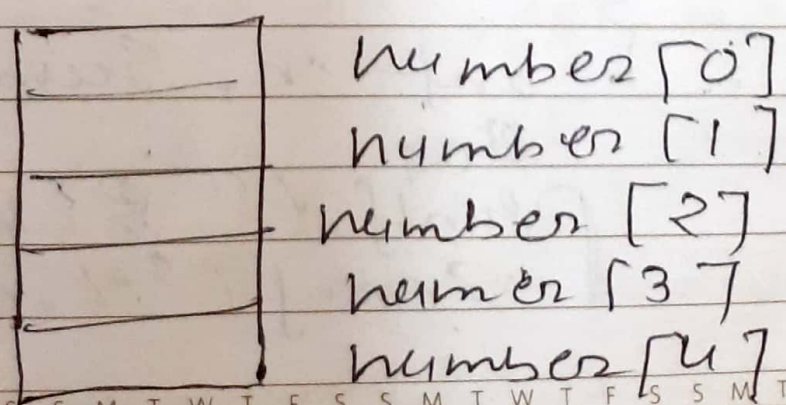 number [0]
number [1]
number [2]
numer [3]
number [4]
S S M T W T F S S M T W T F S S M T